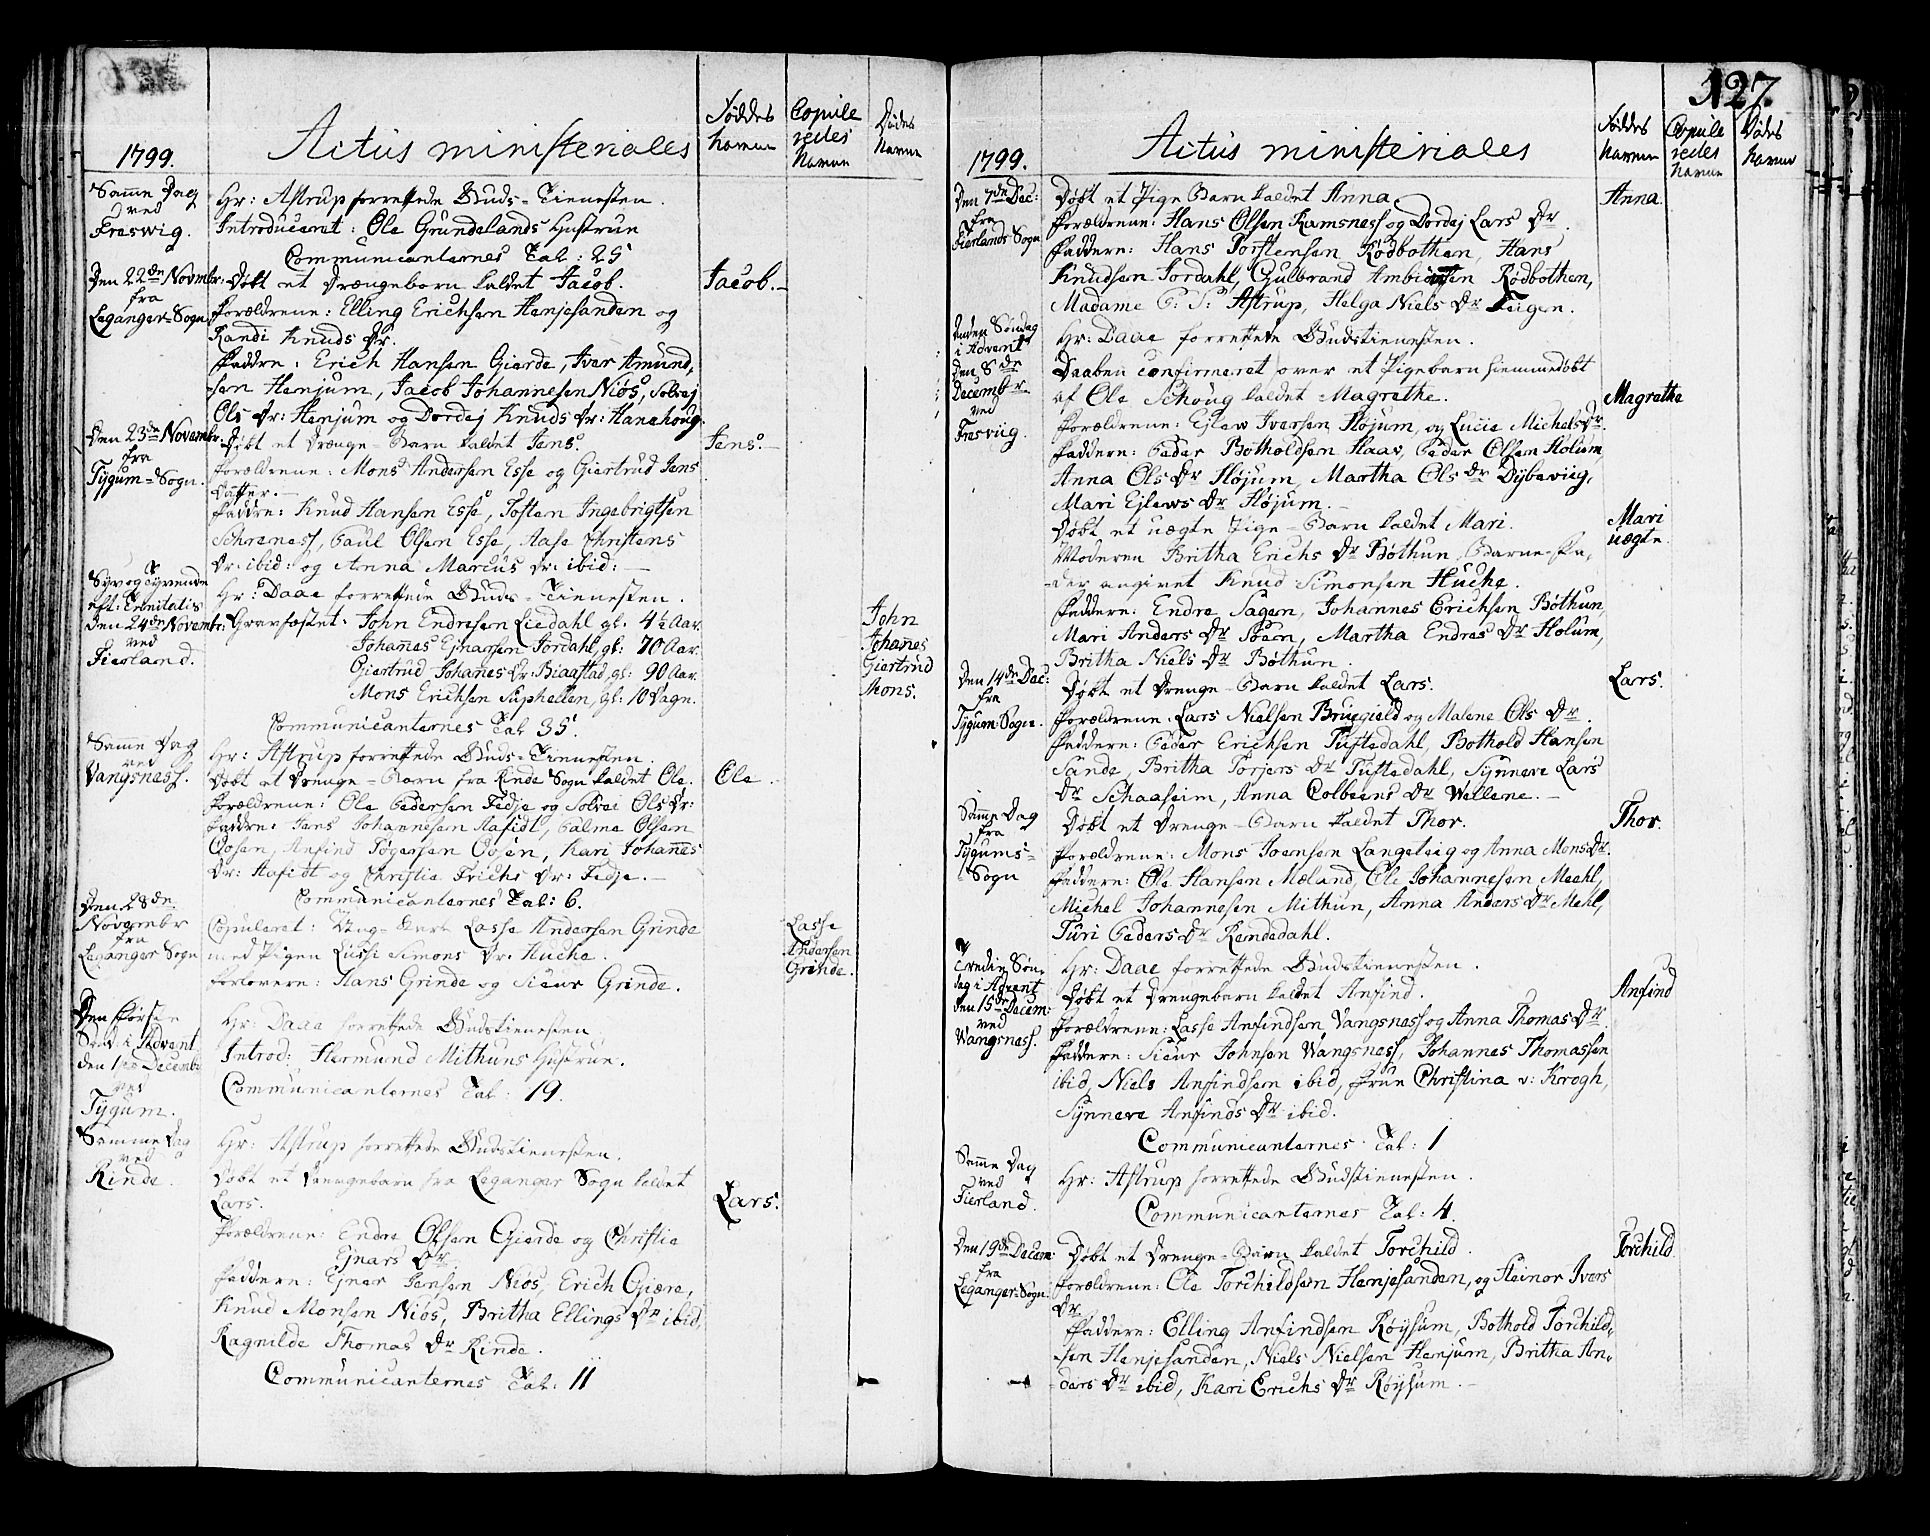 1799.
Actus ministeriales
Føddes Navne
Copule redes Navne
Dødes Navne
Samme Dag
ved
Freswig.
Hr: Astrup forrettede Guds-Tienesten.
Introduceret: Ole Grundelands Hustrue
Communicanternes Tal: 25
Den 22de Novembr:
fra
Leganger-Sogn
Døbt et Drængebarn kaldet Jacob.
Jacob.
Forældrene: Elling Erichsen Henjesanden og
Randi Knuds Dr.
Faddre: Erich Hansen Gierde, Iver Amund-
sen Henjum, Jacob Johannesen Niøs, Solvej
Ols Dr: Henjum og Dordej Knuds Dr: Hanehoug.
Den 23de Novembr.
fra
Tygum-Sogn.
Døbt et Drænge-Barn kaldet Jens.
Jens.
Forældrene: Mons Andersen Esse og Giertrud Jens
Datter.
Faddre: Knud Hansen Esse, Tosten Ingebrigtsen
Schreness, Paul Olsen Esse, Aase Christens
Dr: ibid: og Anna Marcus Dr: ibid:
Syv og Tyvende
eft: Trinitatis
den 24de Novembr:
ved
Fierland.
Hr: Daae forrettede Guds-Tienesten.
Gravfæstet: John Endresen Liedahl gl. 4½ Aar.
John
Johanes Ejnarsen Jordahl, gl: 70 Aar.
Johanes
Giertrud Johanes Dr: Biaastad, gl: 90 Aar.
Giertrud
Mons Erichsen Suphellen, gl: 10 Dagn.
Mons.
Communicanternes Tal 35.
Samme Dag
ved
Vangsness.
Hr: Astrup forrettede Guds-Tienesten.
Døbt et Drenge-Barn fra Rinde Sogn kaldet Ole.
Ole.
Forældrene: Ole Pedersen Fedje og Solvei Ols Dr:
Faddre: Jens Johannesen Aafedt, Palme Olsen
Oosen, Anfind Togersen Oosen, Kari Johannes
Dr: Aafedt og Christie Erichs Dr: Fedje.
Communicanternes Tal: 6.
Den 28de
Novembr
fra
Leganger Sogn
Copuleret: Ung-Karl Lasse Andersen Grinde
med Pigen Lussi Simons Dr: Huche.
Forlovere: Hans Grinde og Siur Grinde.
Lasse
Andersen
Grinde.
Den Første
Sønd: i Advent
den 1ste Decembr
ved
Tygum.
Hr: Daae forrettede Gudstienesten
Introd: Hermund Mithuns Hustrue.
Communicanternes Tal: 19.
Samme Dag
ved
Rinde.
Hr: Astrup forrettede Gudstienesten.
Døbt et Drengebarn fra Leganger Sogn kaldet
Lars.
Lars.
Forældrene: Endre Olsen Gierde og Christie
Ejnars Dr
Faddere: Ejner Jensen Niøs, Erich Giære,
Knud Monsen Niøs, Britha Ellings Dr ibid,
Ragnilde Thomas Dr Rinde.
Communicanternes Tal: 11
127.
1799.
Actus ministeriales
Føddes Navne
Copule redes Navne
Dødes Navne
Den 7de Dec:
fra
Fierlands Sogn
Døbt et Pige Barn kaldet Anna.
Anna
Forældrene: Hans Olsen Ramsness og Dordej Lars Dr.
Faddere: Hans Torstensen Rødbothen, Hans
Knudsen Jordahl, Gulbrand Rødbothen,
Madame C: S: Astrup, Helga Niels Dr Feigen.
Anden Søndag
i Advent
den 8de
Decembr
ved
Fresviig.
Hr: Daae forrettede Gudstienesten.
Daaben confirmeret over et Pigebarn hiemmedøbt
af Ole Schoug kaldet Magrethe.
Magrethe
Forældrene: Ejlew Iversen Højum, og Lucie Michels Dr.
Faddere: Peder Botholdsen Haav, Peder Olsen Holum,
Anna Ols Dr Højum, Martha Ols Dr Dybeviig,
Mari Ejlews Dr Højum.
Døbt et uægte Pige-Barn kaldet Mari.
Mari
uægte.
Moderen Britha Erichs Dr Bøthun, Barne-Fa-
der angivet Knud Simonsen Huche.
Faddere: Endre Sagen, Johannes Erichsen Bøthun,
Mari Anders Dr Søen, Martha Endres Dr Holum,
Britha Niels Dr Bøthun.
Den 14de Dec:
fra
Tygum-Sogn.
Døbt et Drenge-Barn kaldet Lars.
Lars.
Forældrene: Lars Nielsen Bruegield og Malene Ols Dr.
Faddere: Peder Erichsen Tuftedahl, Bothold Hansen
Sande, Britha Torjers Dr Tuftedahl, Synneve Lars
Dr Schaaheim, Anna Colbeens Dr Wellene.
Samme Dag
fra
Tygums-
Sogn
Døbt et Drenge-Barn kaldet Thor.
Thor.
Forældrene: Mons Joensen Langeteig og Anna Mons Dr.
Faddere: Ole Hansen Mæland, Ole Johannesen Mæhl,
Michel Johannesen Mithun, Anna Anders Dr Mehl,
Turi Peders Dr Rendedahl.
Tredie Søn-
dag i Advent
den 15de Decem:
ved
Wangsness.
Hr: Daae forrettede Gudstienesten.
Døbt et Drengebarn kaldet Anfind.
Anfind
Forældrene: Lasse Anfindsen Vangsness og Anna Thomas Dr.
Faddere: Siur Johnsen Wangsness, Johannes Thomassen
ibid, Niels Anfindsen ibid, Frue Christina v: Krogh,
Synneve Anfinds Dr ibid.
Communicanternes Tal: 1
Samme Dag
ved
Fierland.
Hr: Astrup forrettede Gudstienesten.
Communicanternes Tal: 4.
Den 19de Decem:
fra
Leganger-Sogn.
Døbt et Drenge-Barn kaldet Torchild.
Torchild
Forældrene: Ole Torchildsen Henjesanden, og Steinor Ivers
Dr
Faddere: Elling Anfindsen Røysum, Bothold Torchild-
sen Henjesanden, Niels Nielsen Henjum, Britha An-
ders Dr ibid, Kari Erichs Dr Røysum.